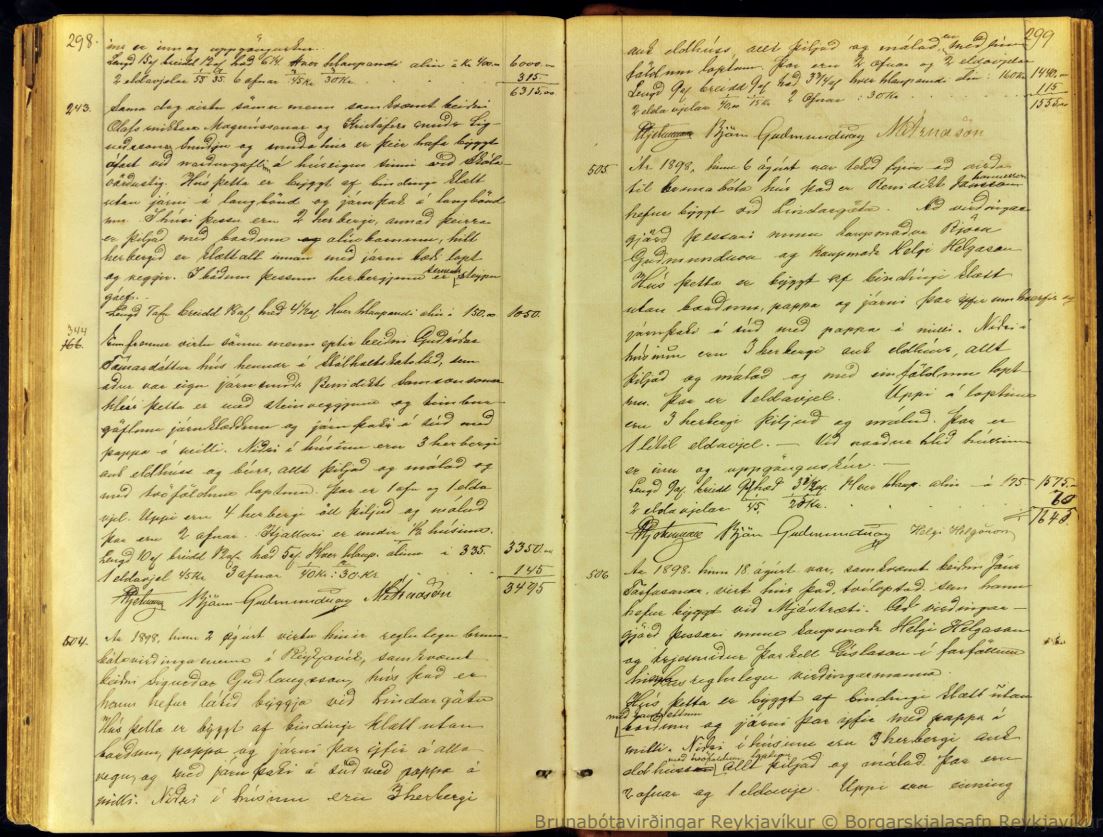 298.
ins er inn og uppgöngu
Lengd 15 al breidd 12 al hæd 6 Hver hlaupandi alin á K 400.00 6000.00
2 eldavjelar 6 ofnar 315
6315.00
243. Sama dag virtu sömu menn samkvæmt beidni
Ólafs Magnússonar og Kristófers Sig-
urdssonar og er þeir hafa byggt
vid nordurgafl á húseign sinni vid Skóla-
vördustíg. Hús þetta er byggt af bindingi klætt
utan járni á langbönd og járnþak á langbönd
um. Í húsi þessu eru 2 herbergi, annad þeirra
er þiljad med bordum og hitt
herbergid er klætt allt innan med járni bædi lopt
og veggir. Í bádum þessum herbergjum er steypu
gólf.
Lengd 7 al breidd hæd 4½ al Hver hlaupandi alin á 150.00 1050.
344
Ennfremur virtu sömu menn eptir beidni Gudrídar
Tómasdóttur hús hennar í Skálholtskotslód, sem
ádur var eign járnsmids Benidikts Samsonsonar
Hús þetta er med steinveggjum og timbur
göflum járnklæddum og járnþaki á súd med
pappa á milli. Nidri í húsinu eru 3 herbergi
auk eldhúss og búrs, allt þiljad og málad og
med tvöföldum loptum. Þar er 1 ofn og 1 elda
vjel. Uppi eru 4 herbergi öll þiljud og málud
Þar eru 2 ofnar. Kjallari er undir ½ húsinu.
Lengd 10 al breidd 12 al hæd 5 al Hver hlaup. alin á 335. 3350.00
1 eldavjel 45 Kr 3 ofnar 40 Kr : 30 Kr 145
3495
Björn Gudmundsson M Árnason
504. Ár 1898, hinn 2 ágúst virtu hinir reglulegu bruna
bótavirdingamenn í Reykjavík, samkvæmt
beidni Sigurdar Gudlaugssonar hús þad er
hann hefur látid byggja vid Lindargötu
Hús þetta er byggt af bindingi klætt utan
bordum, pappa og járni þar yfir á alla
vegu, og med járnþaki á súd med pappa á
milli. Nidri í húsinu eru 3 herbergi
299
auk eldhúss, allt þiljad og málad med ein
földum loptum. Þar eru 2 ofnar og 2 eldavjelar
Lengd 9 al breidd 9 al hæd 3 al hver hlaupandi alin: 160 Kr 1440.00
2 eldavjelar 2 ofnar : 30 Kr 115
1555.00
Björn Gudmundsson M Árnason
505 Ár 1898, hinn 6 ágúst var tekid fyrir ad virda
til brunabóta hús þad er Benidikt Jónsson
hefur byggt vid Lindargötu. Ad virdingar
gjörd þessari unnu kaupmadur Björn
Gudmundsson og kaupmadr Helgi Helgason
Hús þetta er byggt af bindingi klætt
utan bordum, pappa og járni þar yfir
járnþaki á súd med pappa í milli. Nidri í
húsinu eru 3 herbergi auk eldhúss, allt
þiljad og málad og med einföldum lopt
um. Þar er 1 eldavjel. Uppi á loptinu
eru 3 herbergi þiljud og málud. Þar er
1 lítil eldavjel. — Vid nordur hlid hússins
er inn og uppgönguskúr. —
Lengd 9 al breidd 9 al hæd 3 al Hver hlaup. alin — á 175 1575.—
2 eldavjelar
1645
Björn Gudmundsson Helgi Helgason
506 Ár 1898, hinn 18 ágúst var, samkvæmt beidni Jóns
virt hús þad, tvíloptad, sem hann
hefur byggt vid Mjóstræti. Ad virdingar-
gjörd þessari unnu kaupmadr Helgi Helgason
og trjesmidur Þorkell Gíslason í forföllum
reglulegu virdingarmanna.
Hús þetta er byggt af bindingi klætt utan
bordum og járni þar yfir med pappa á
milli. Nidri í húsinu eru 3 herbergi auk
med tvöföldum loptum
eldhúss allt þiljad og málad. Þar eru
2 ofnar og 1 eldavjel. Uppi eru einnig
Brunabótavirðingar Reykjavíkur © Borgarskjalasafn Reykjavíkur